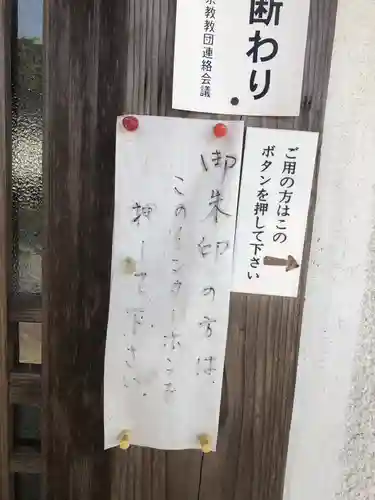 断わり
宗教教団連絡会議
ご用の方はこの
ボタンを押して下さい
御朱印の方は
このインターホンを
押して下さい。